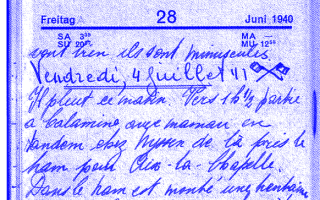 Freitag 28 Juni 1940
SA. 3 MA —
SU. 20 MU. 12
ils sont minuscules.
Vendredi, 4 Juillet 41
Il pleut ce matin. Vers 1 h ½ partie
à Calamine avec maman en
tandem chez de là pris le
tram pour Aix-la-Chapelle.
Dans le tram est monté une